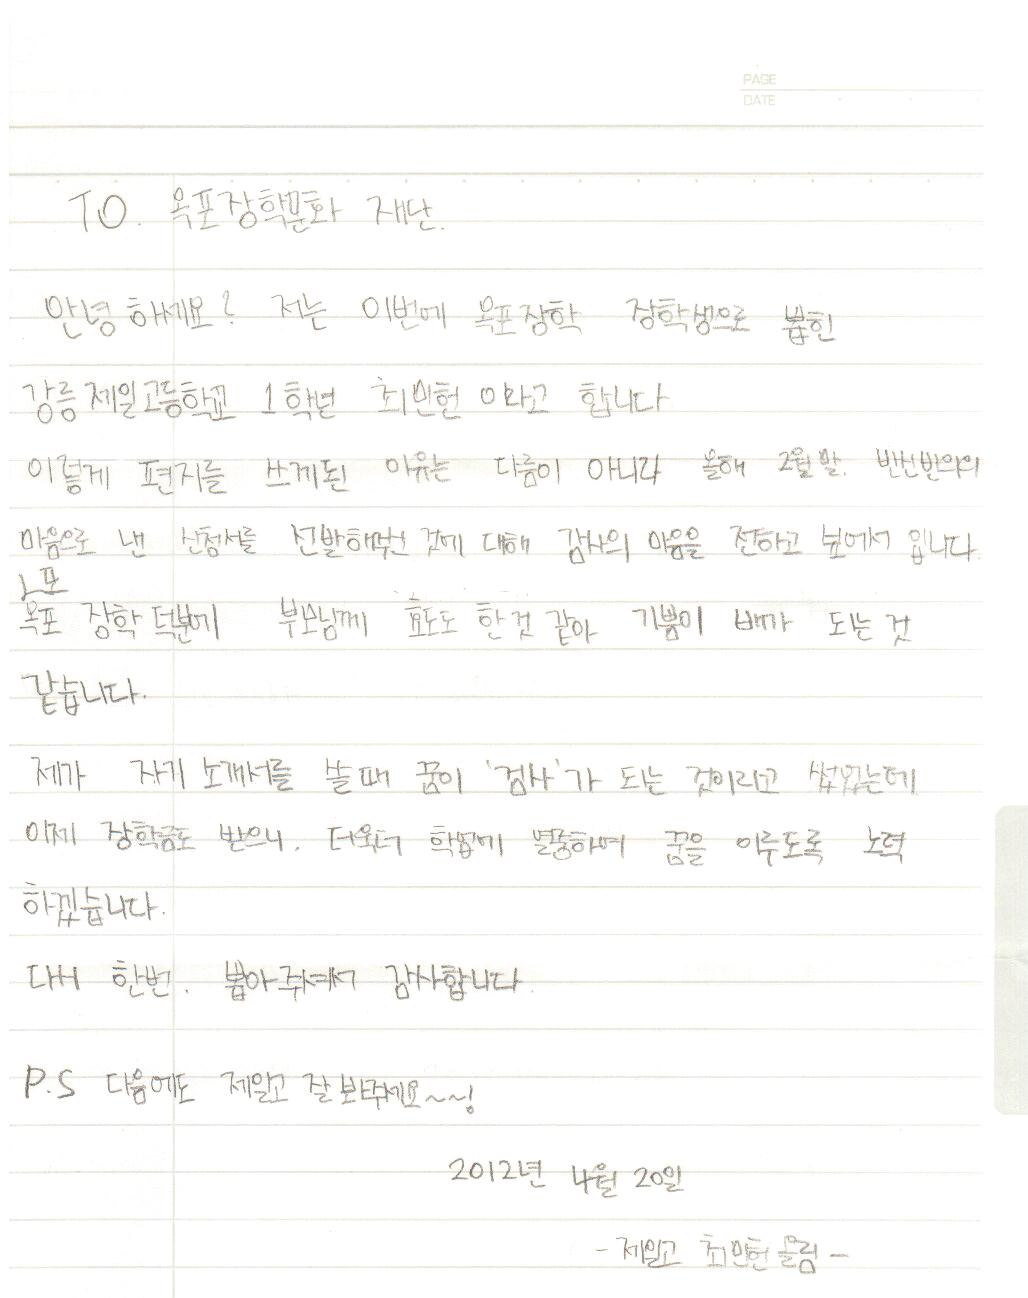 PAGE
DATE
TO. 옥포장학문화 재단.
안녕하세요? 저는 이번에 옥포장학 장학생으로 뽑힌
강릉제일고등학교 1학년 최민헌 이라고 합니다
이렇게 편지를 쓰게된 이유는 다름이 아니라 올해 2월 말. 반신반의의
마음으로 낸 신청서를 선발해주신 것에 대해 감사의 마음을 전하고 싶어서 입니다.
옥포 장학 덕분에 부모님께 효도도 한것 같아 기쁨이 배가 되는 것
같습니다.
제가 자기 소개서를 쓸때 꿈이 '검사'가 되는 것이라고 썼었는데
이제 장학금도 받으니, 더욱더 학업에 열중하여 꿈을 이루도록 노력
하겠습니다.
다시 한번. 뽑아주셔서 감사합니다.
P.S 다음에도 제일고 잘 봐주세요~~!
2012년 4월 20일
- 제일고 최민헌 올림 -